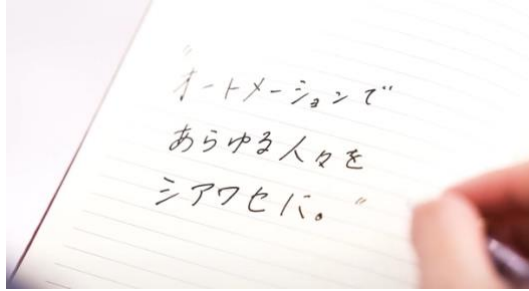 “オートメーションで
あらゆる人々を
シアワセに。”